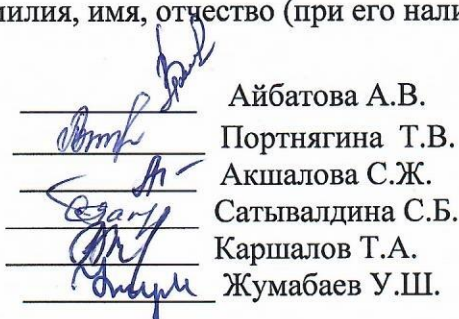 милия, имя, отчество (при его нали
Айбатова А.В.
Портнягина Т.В.
Акшалова С.Ж.
Сатывалдина С.Б.
Каршалов Т.А.
Жумабаев У.Ш.